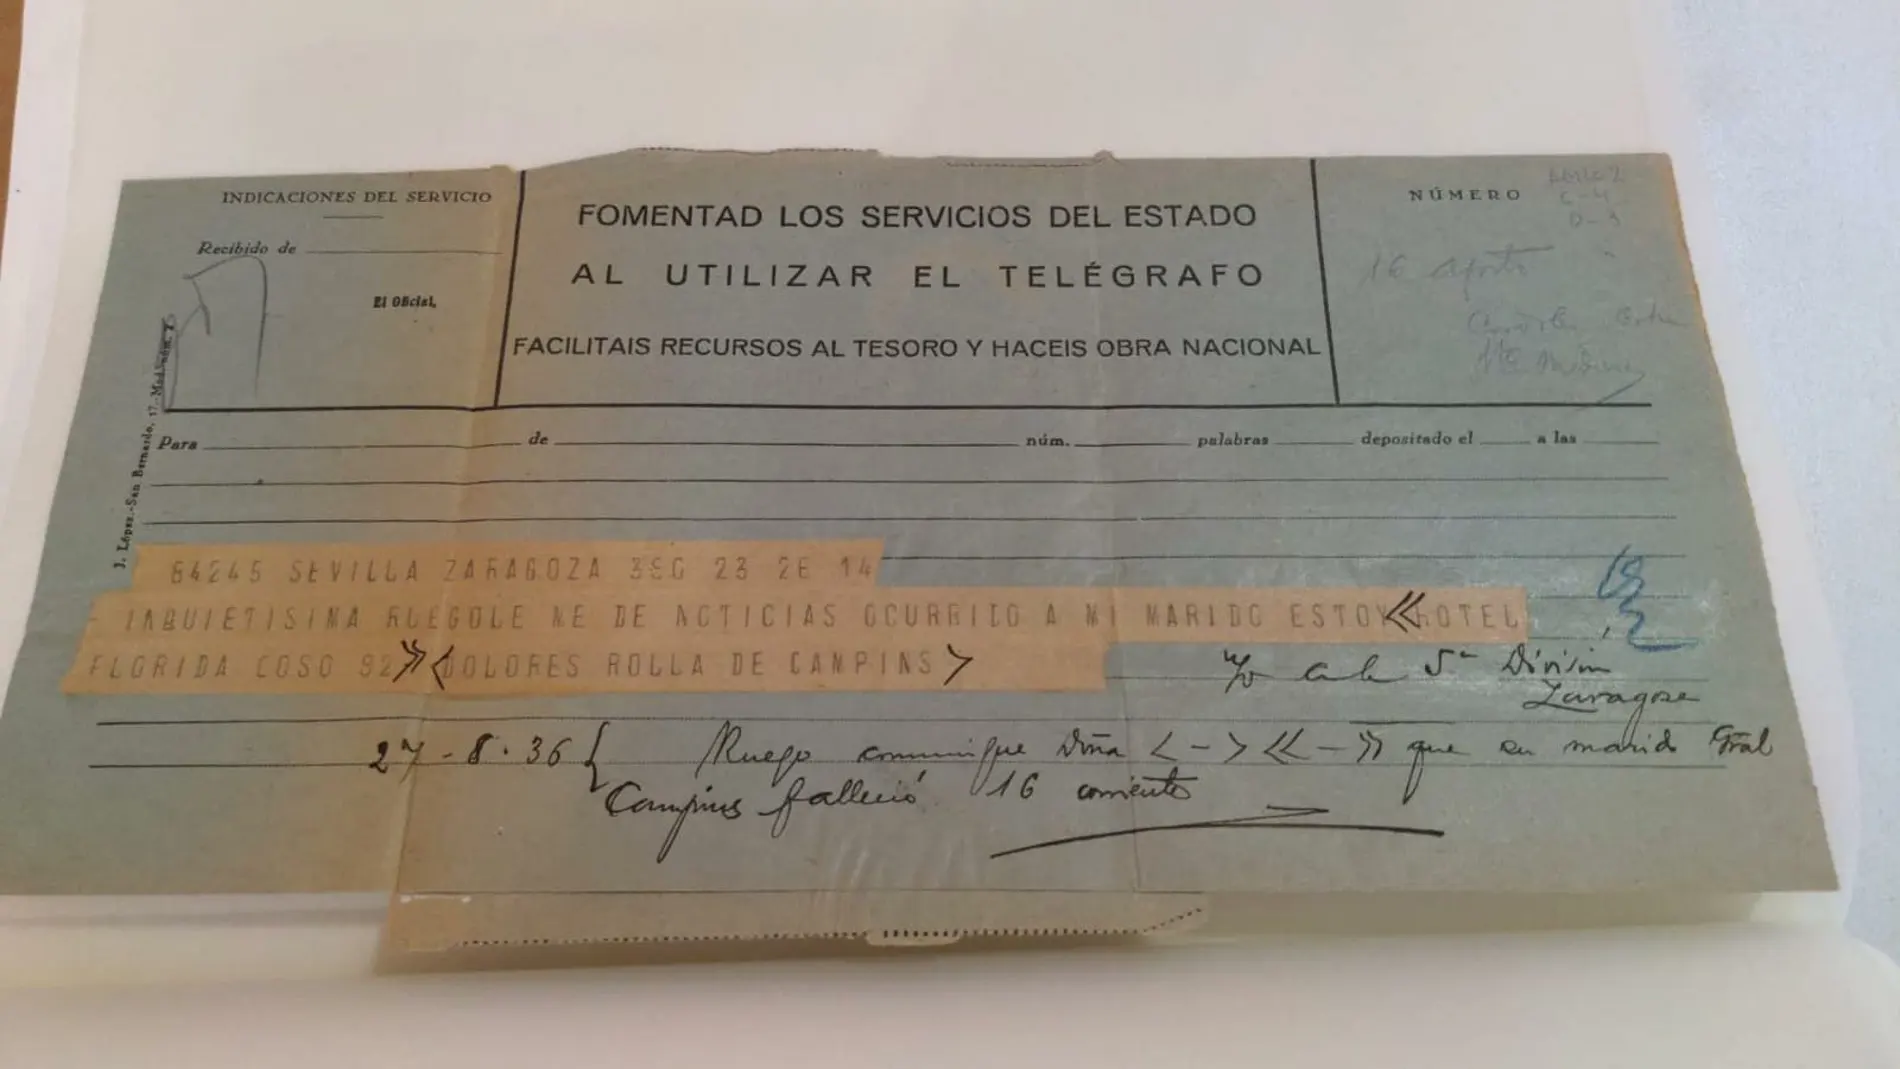 INDICACIONES DEL SERVICIO
Recibido de
El Oficial,
FOMENTAD LOS SERVICIOS DEL ESTADO
AL UTILIZAR EL TELÉGRAFO
FACILITAIS RECURSOS AL TESORO Y HACEIS OBRA NACIONAL
NÚMERO
C-4
D-3
16 agosto
J. López.-San Bernardo, 17.-Mod. núm. 7
Para de núm. palabras depositado el a las
64245 SEVILLA ZARAGOZA 38G 23 26 14
INQUIETISIMA RUEGOLE ME DE NOTICIAS OCURRIDO A MI MARIDO ESTOY << HOTEL
FLORIDA COSO 92 >> < DOLORES ROLLA DE CAMPINS >
a la 5ª División
Zaragoza
27-8-36 { Ruego comunique Doña < - > << - >> que su marido Gral
Campins falleció 16 corriente